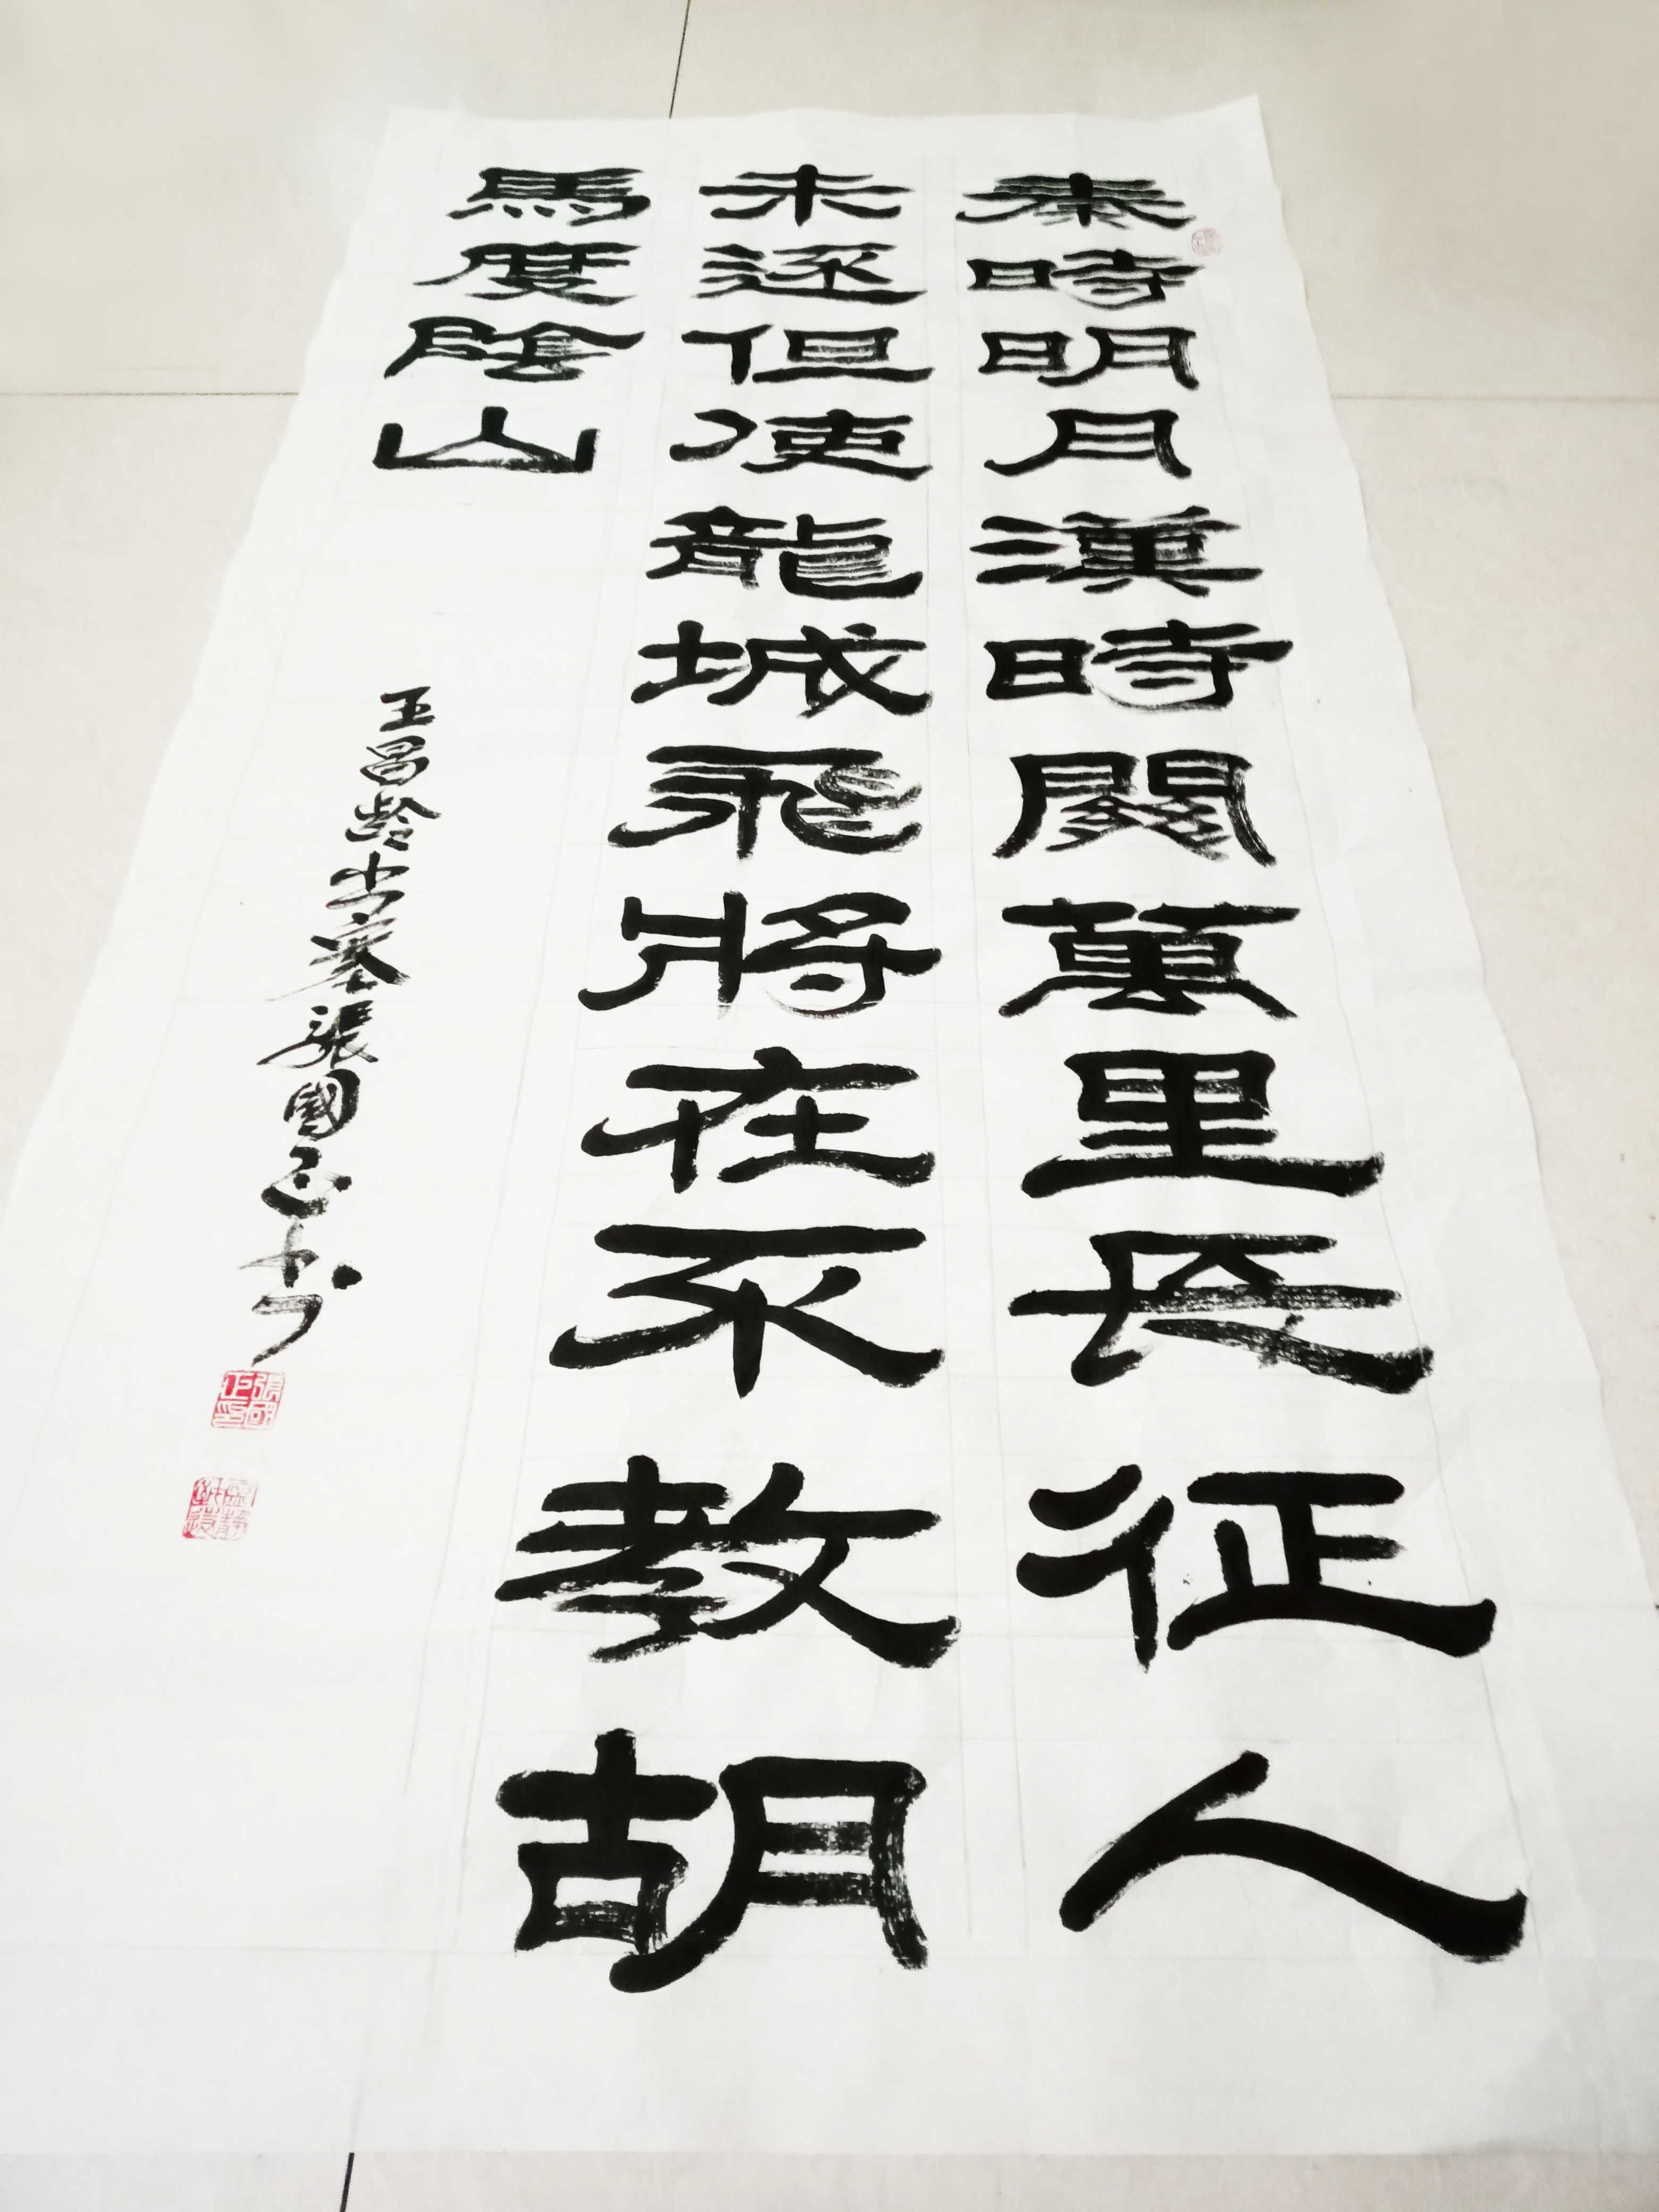 秦時明月漢時關萬里長征人
未還但使龍城飛將在不教胡
馬度陰山
王昌龄出塞張國正书
張國正印